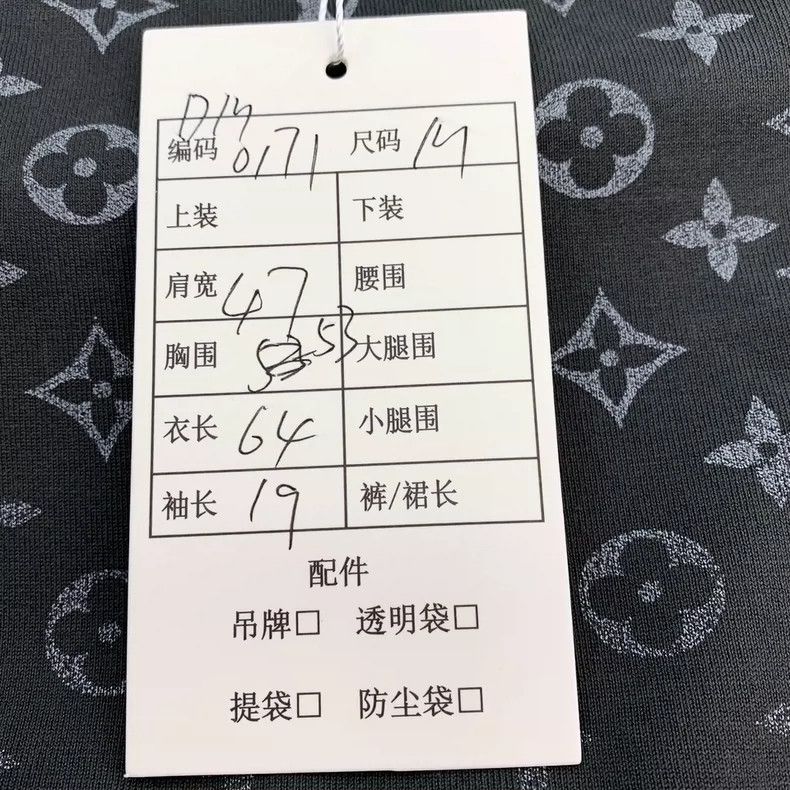 D14
编码 0171 尺码 14
上装 下装
肩宽 47 腰围
胸围 53 大腿围
衣长 64 小腿围
袖长 19 裤/裙长
配件
吊牌□ 透明袋□
提袋□ 防尘袋□